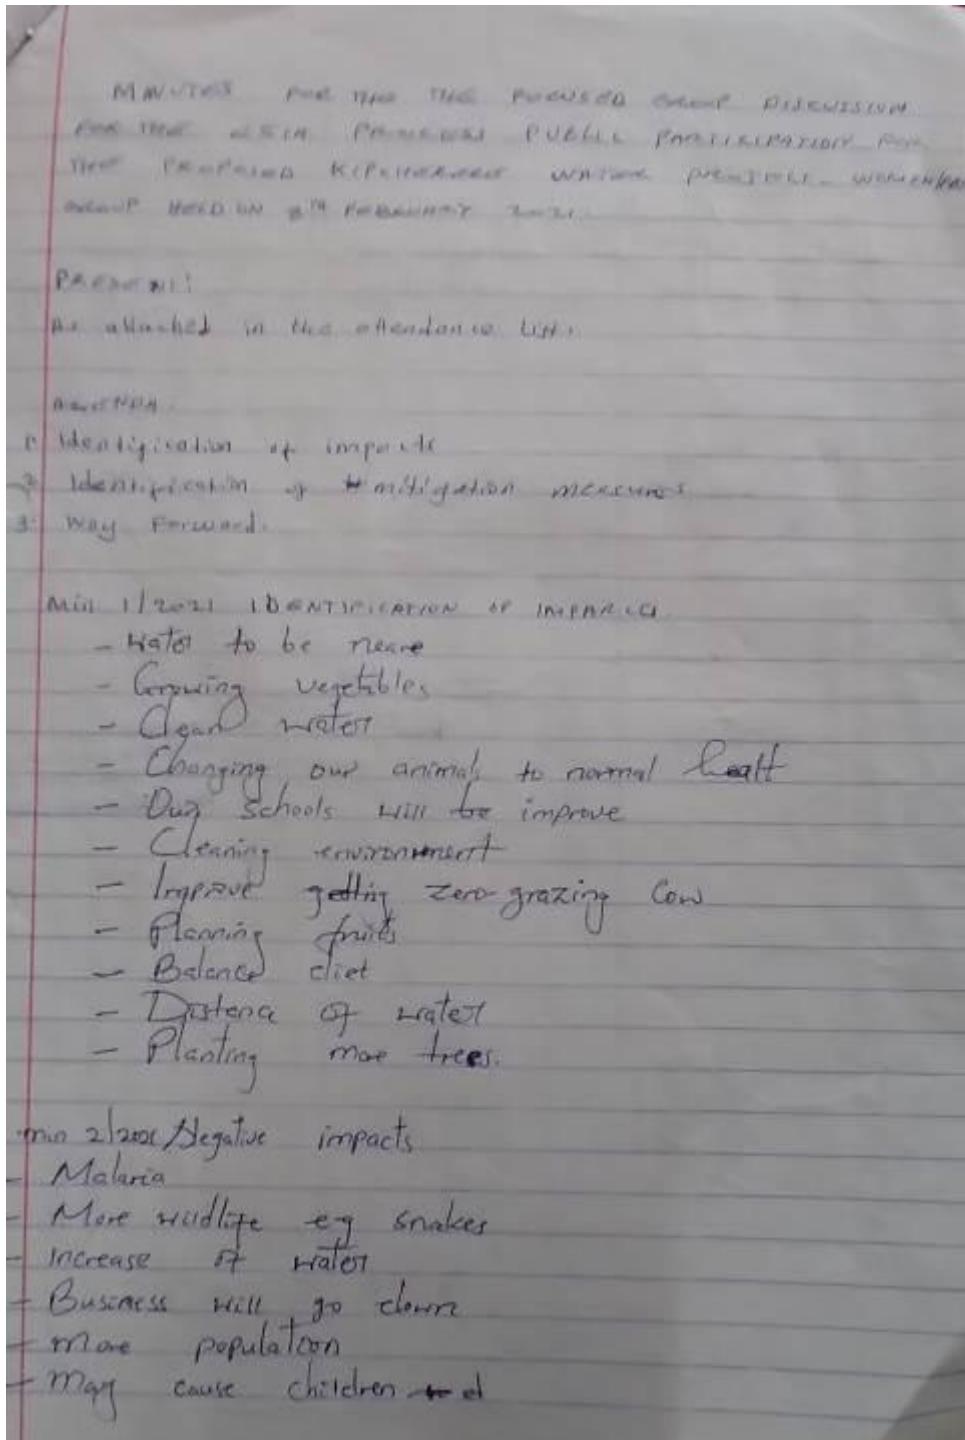 MINUTES FOR THE THE FOCUSED GROUP DISCUSSION
FOR THE ESIA PROCESS PUBLIC PARTICIPATION FOR
THE PROPOSED WATER PROJECT - WOMEN
GROUP HELD ON 8TH FEBRUARY 2021.
PRESENT:
As attached in the attendance list.
AGENDA.
1. Identification of impacts
2. Identification of mitigation measures
3. Way Forward.
Min 1/2021 IDENTIFICATION OF IMPACTS
- Water to be neare
- Growing vegetables
- Clean water
- Changing our animals to normal healt
- Our schools will be improve
- Cleaning environment
- Improve getting zero-grazing Cow
- Planning fruits
- Balance diet
- Distance of water
- Planting more trees.
min 2/2021 Negative impacts
- Malaria
- More wildlife eg snakes
- Increase of water
- Business will go down
- more population
- May cause children d